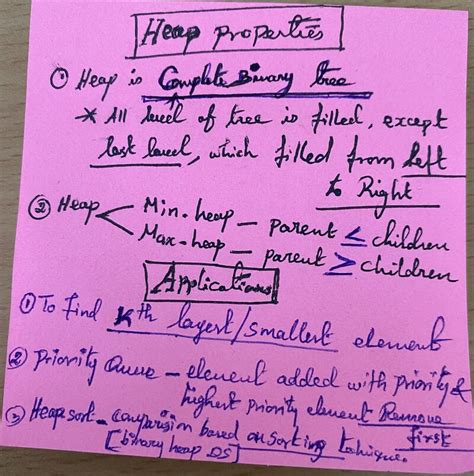 Heap properties
① Heap is Complete Binary tree
* All level of tree is filled, except
last level, which filled from left
to Right
② Heap < Min-heap – parent ≤ children
Max-heap – parent ≥ children
Applications
① To find kth largest/smallest element
② Priority Queue – element added with priority &
highest priority element Remove
first
③ Heap sort – comparision based on sorting technique.
[binary heap DS]